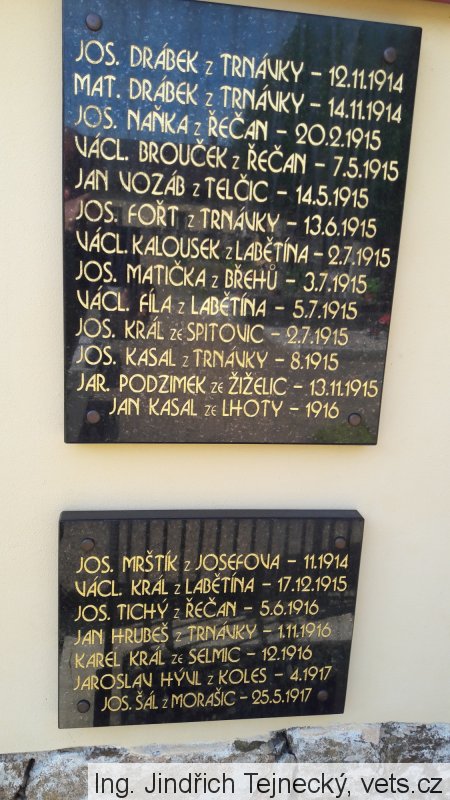 JOS. DRÁBEK Z TRNÁVKY – 12.11.1914
MAT. DRÁBEK Z TRNÁVKY – 14.11.1914
JOS. NAŇKA Z ŘEČAN – 20.2.1915
VÁCL. BROUČEK Z ŘEČAN – 7.5.1915
JAN VOZÁB Z TELČIC – 14.5.1915
JOS. FOŘT Z TRNÁVKY – 13.6.1915
VÁCL. KALOUSEK Z LABĚTÍNA – 2.7.1915
JOS. MATIČKA Z BŘEHŮ – 3.7.1915
VÁCL. FÍLA Z LABĚTÍNA – 5.7.1915
JOS. KRÁL ZE SPITOVIC – 2.7.1915
JOS. KASAL Z TRNÁVKY – 8.1915
JAR. PODZIMEK ZE ŽIŽELIC – 13.11.1915
JAN KASAL ZE LHOTY – 1916
JOS. MRŠTÍK Z JOSEFOVA – 11.1914
VÁCL. KRÁL Z LABĚTÍNA – 17.12.1915
JOS. TICHÝ Z ŘEČAN – 5.6.1916
JAN HRUBEŠ Z TRNÁVKY – 1.11.1916
KAREL KRÁL ZE SELMIC – 12.1916
JAROSLAV HÝVL Z KOLES – 4.1917
JOS. ŠÁL Z MORAŠIC – 25.5.1917
Ing. Jindřich Tejnecký, vets.cz